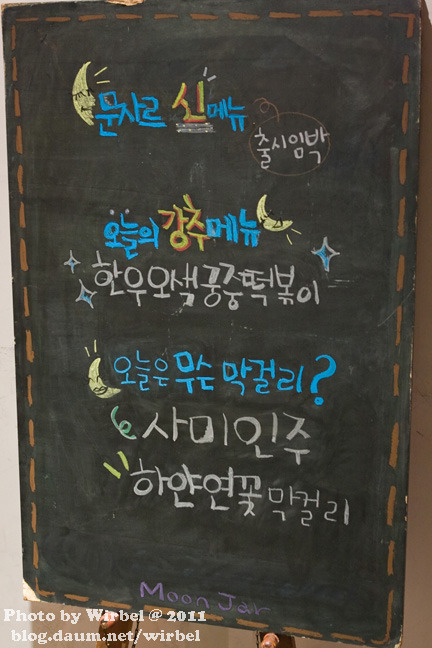 문자르 신메뉴
출시임박
오늘의 강추메뉴
한우오색궁중떡볶이
오늘은 무슨 막걸리?
사미인주
하얀연꽃 막걸리
Moon Jar
Photo by Wirbel @ 2011
blog.daum.net/wirbel